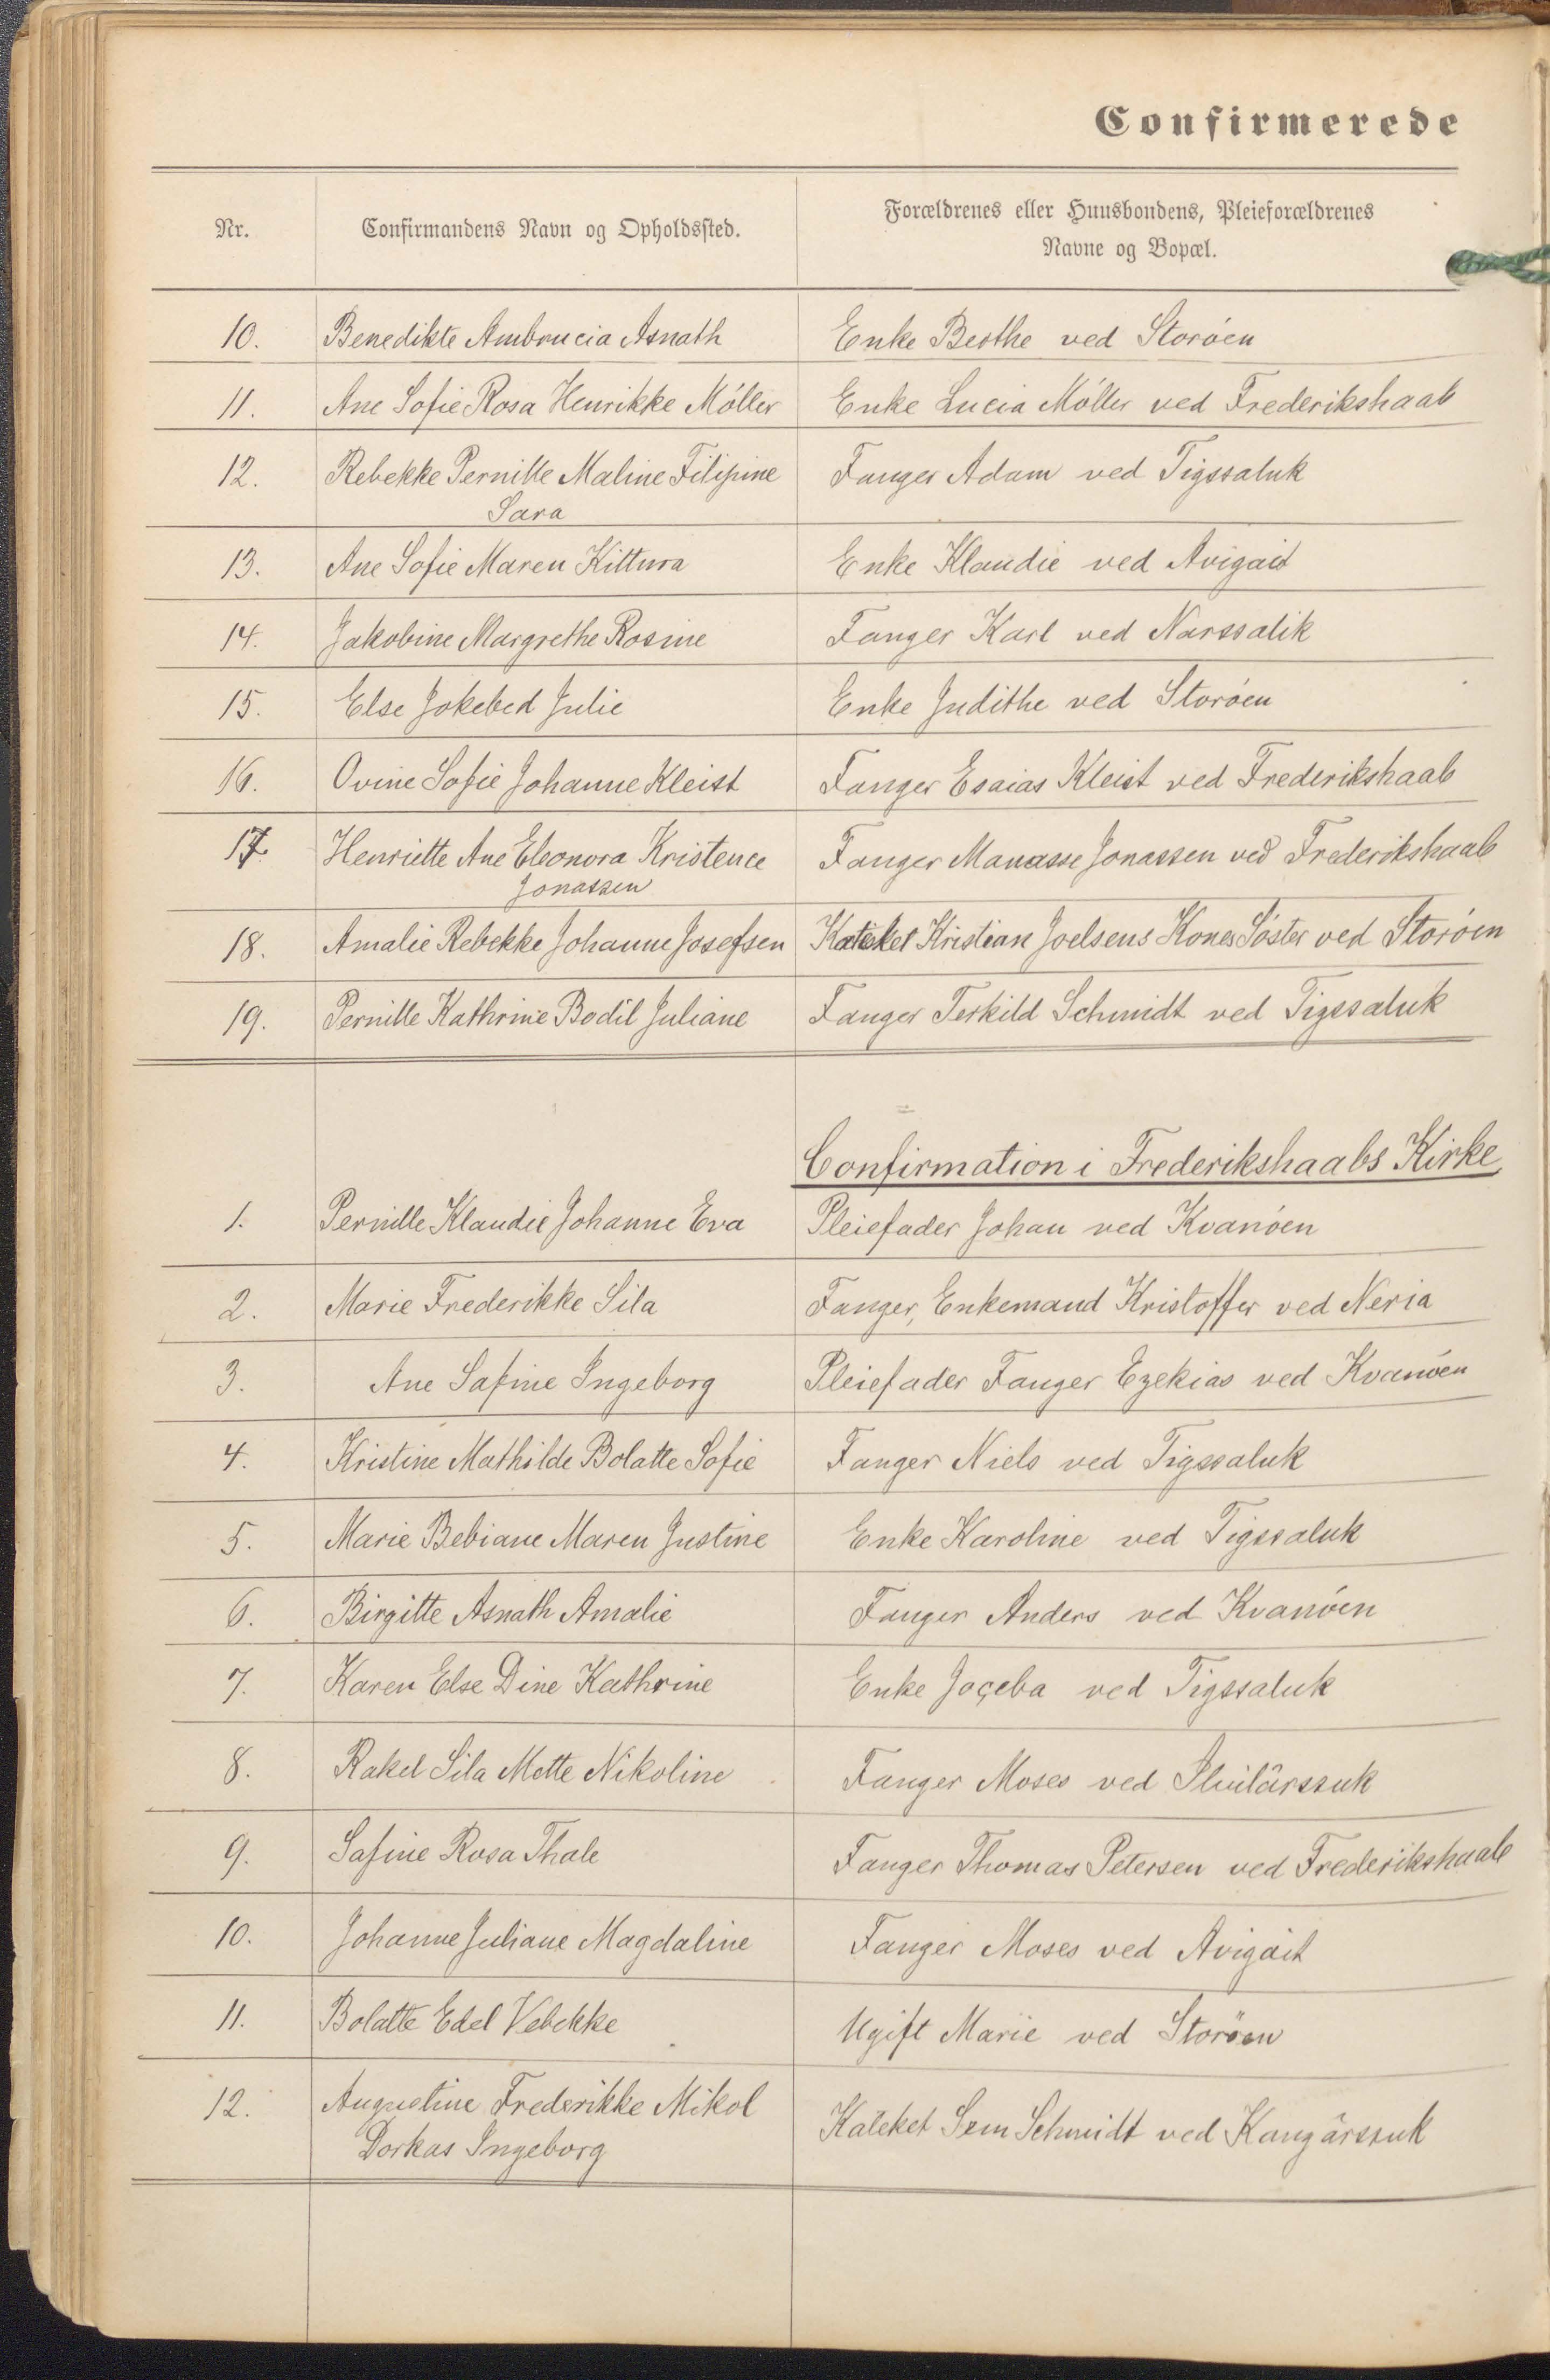 Confirmerede
Nr. Confirmandens Navn og Opholdssted. Forældrenes eller Huusbondens, Pleieforældrenes
Navne og Bopæl.
10. Benedikte Ambrucia Asnath Enke Berthe ved Storöen
11. Ane Sofie Rosa Henrikke Möller Enke Lucia Möller ved Frederikshaab
12. Rebekke Pernille Maline Filipine Fanger Adam ved Tigssaluk
Sara
13. Ane Sofie Maren Kittura Enke Klaudie ved Avigait
14. Jakobine Margrethe Rosine Fanger Karl ved Narssalik
15. Else Jokebed Julie Enke Judithe ved Storöen
16. Ovine Sofie Johanne Kleist Fanger Esaias Kleist ved Frederikshaab
17. Henriette Ane Eleonora Kristence Fanger Manasse Jonassen ved Frederikshaab
Jonassen
18. Amalie Rebekke Johanne Josefsen Kateket Kristian Joelsens Kones Söster ved Storöen
19. Pernille Kathrine Bodil Juliane Fanger Terkild Schmidt ved Tigssaluk
Confirmation i Frederikshaabs Kirke
1. Pernille Klaudie Johanne Eva Pleiefader Johan ved Kvanöen
2. Marie Frederikke Sila Fanger, Enkemand Kristoffer ved Neria
3. Ane Safine Ingeborg Pleiefader Fanger Ezekias ved Kvanöen
4. Kristine Mathilde Bolatte Sofie Fanger Niels ved Tigssaluk
5. Marie Bebiane Maren Justine Enke Karoline ved Tigssaluk
6. Birgitte Asnath Amalie Fanger Anders ved Kvanöen
7. Karen Else Dine Kathrine Enke ved Tigssaluk
8. Rakel Sila Mette Nikoline Fanger Moses ved
9. Safine Rosa Thale Fanger Thomas Petersen ved Frederikshaab
10. Johanne Juliane Magdaline Fanger Moses ved Avigait
11. Bolatte Edel Vebekke Ugift Marie ved Storöen
12. Augustine Frederikke Mikol Kateket Sem Schmidt ved Kangârssuk
Dorkas Ingeborg